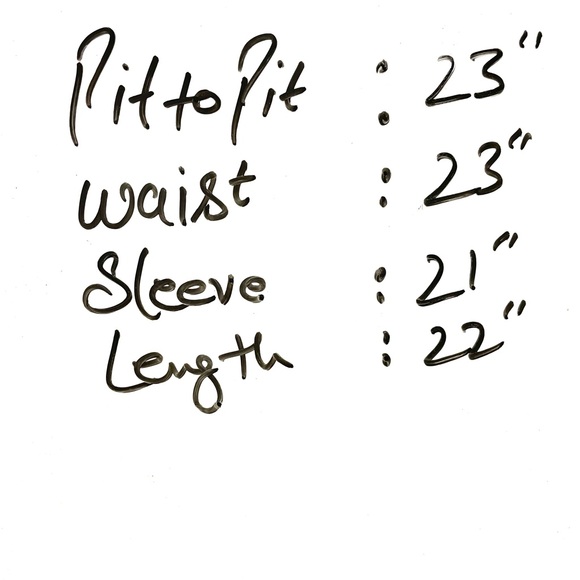 Pit to Pit : 23"
Waist : 23"
Sleeve : 21"
Length : 22"